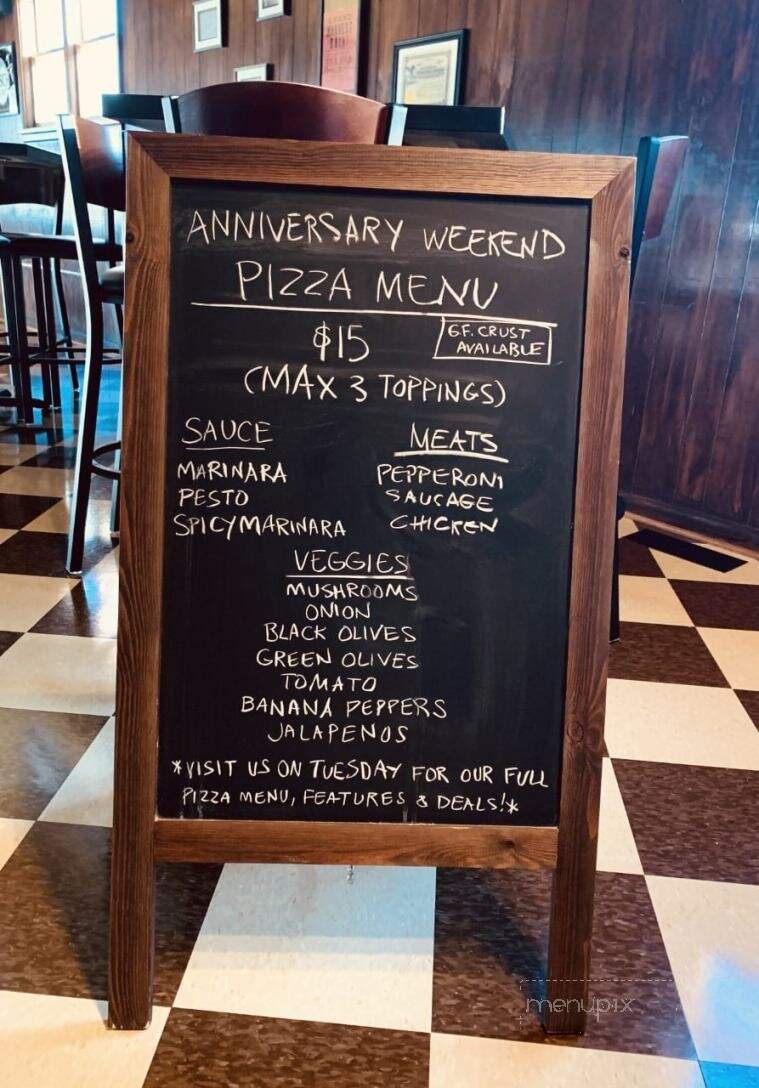 ANNIVERSARY WEEKEND
PIZZA MENU
$15
G.F. CRUST
AVAILABLE
(MAX 3 TOPPINGS)
SAUCE
MARINARA
PESTO
SPICY MARINARA
MEATS
PEPPERONI
SAUSAGE
CHICKEN
VEGGIES
MUSHROOMS
ONION
BLACK OLIVES
GREEN OLIVES
TOMATO
BANANA PEPPERS
JALAPENOS
*VISIT US ON TUESDAY FOR OUR FULL
PIZZA MENU, FEATURES & DEALS!*
menupix